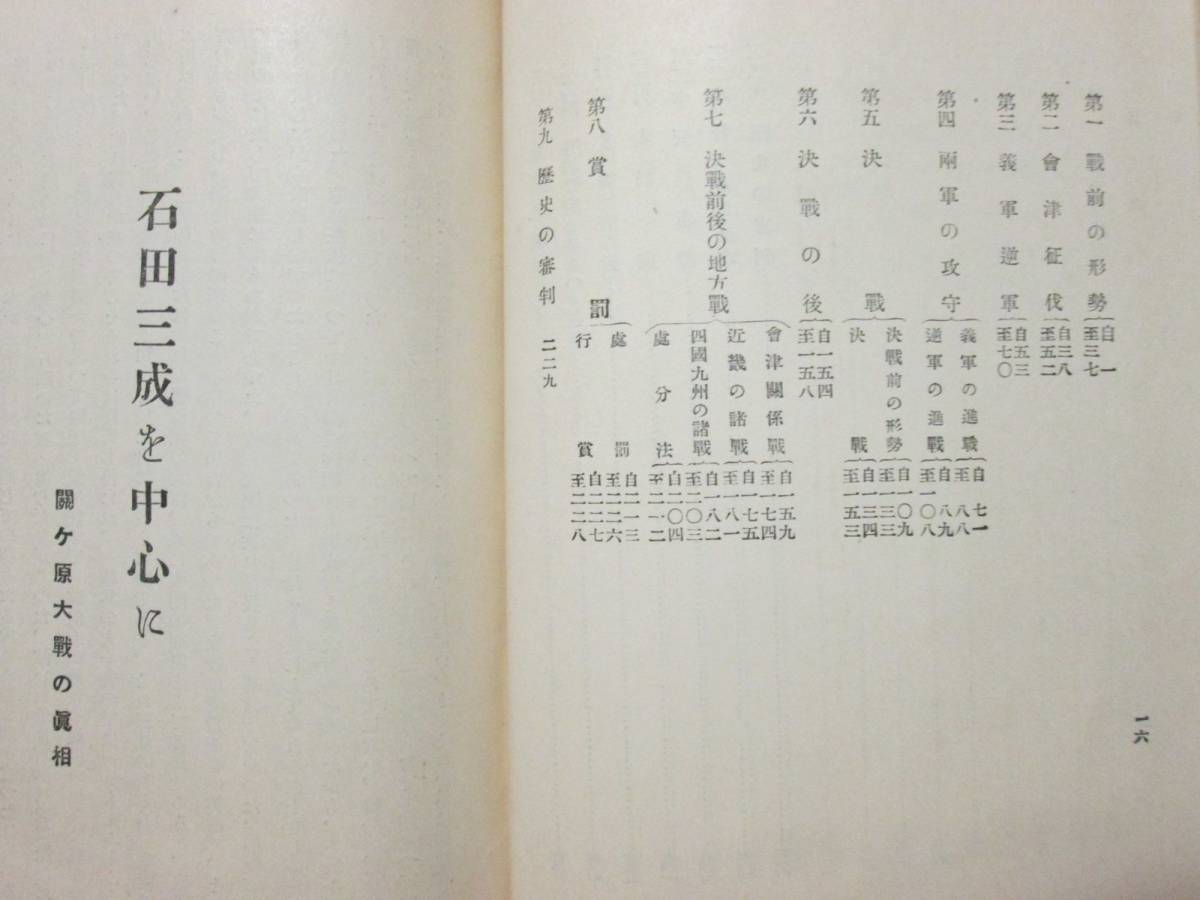 第一 戰前の形勢 自一 至三七
第二 會津征伐 自三八 至五二
第三 義軍逆軍 自五三 至七〇
第四 兩軍の攻守
義軍の進戰 自七一 至八八
逆軍の進戰 自八九 至一〇八
第五 決戰
決戰前の形勢 自一〇九 至一三三
決戰 自一三四 至一五三
第六 決戰の後 自一五四 至一五八
第七 決戰前後の地方戰
會津關係戰 自一五九 至一七四
近畿の諸戰 自一七五 至一八一
四國九州の諸戰 自一八二 至二〇三
處分法 自二〇四 至二一二
第八 賞罰
處罰 自二一三 至二二六
行賞 自二二七 至二二八
第九 歷史の審判 二二九
一六
石田三成を中心に
關ケ原大戰の眞相